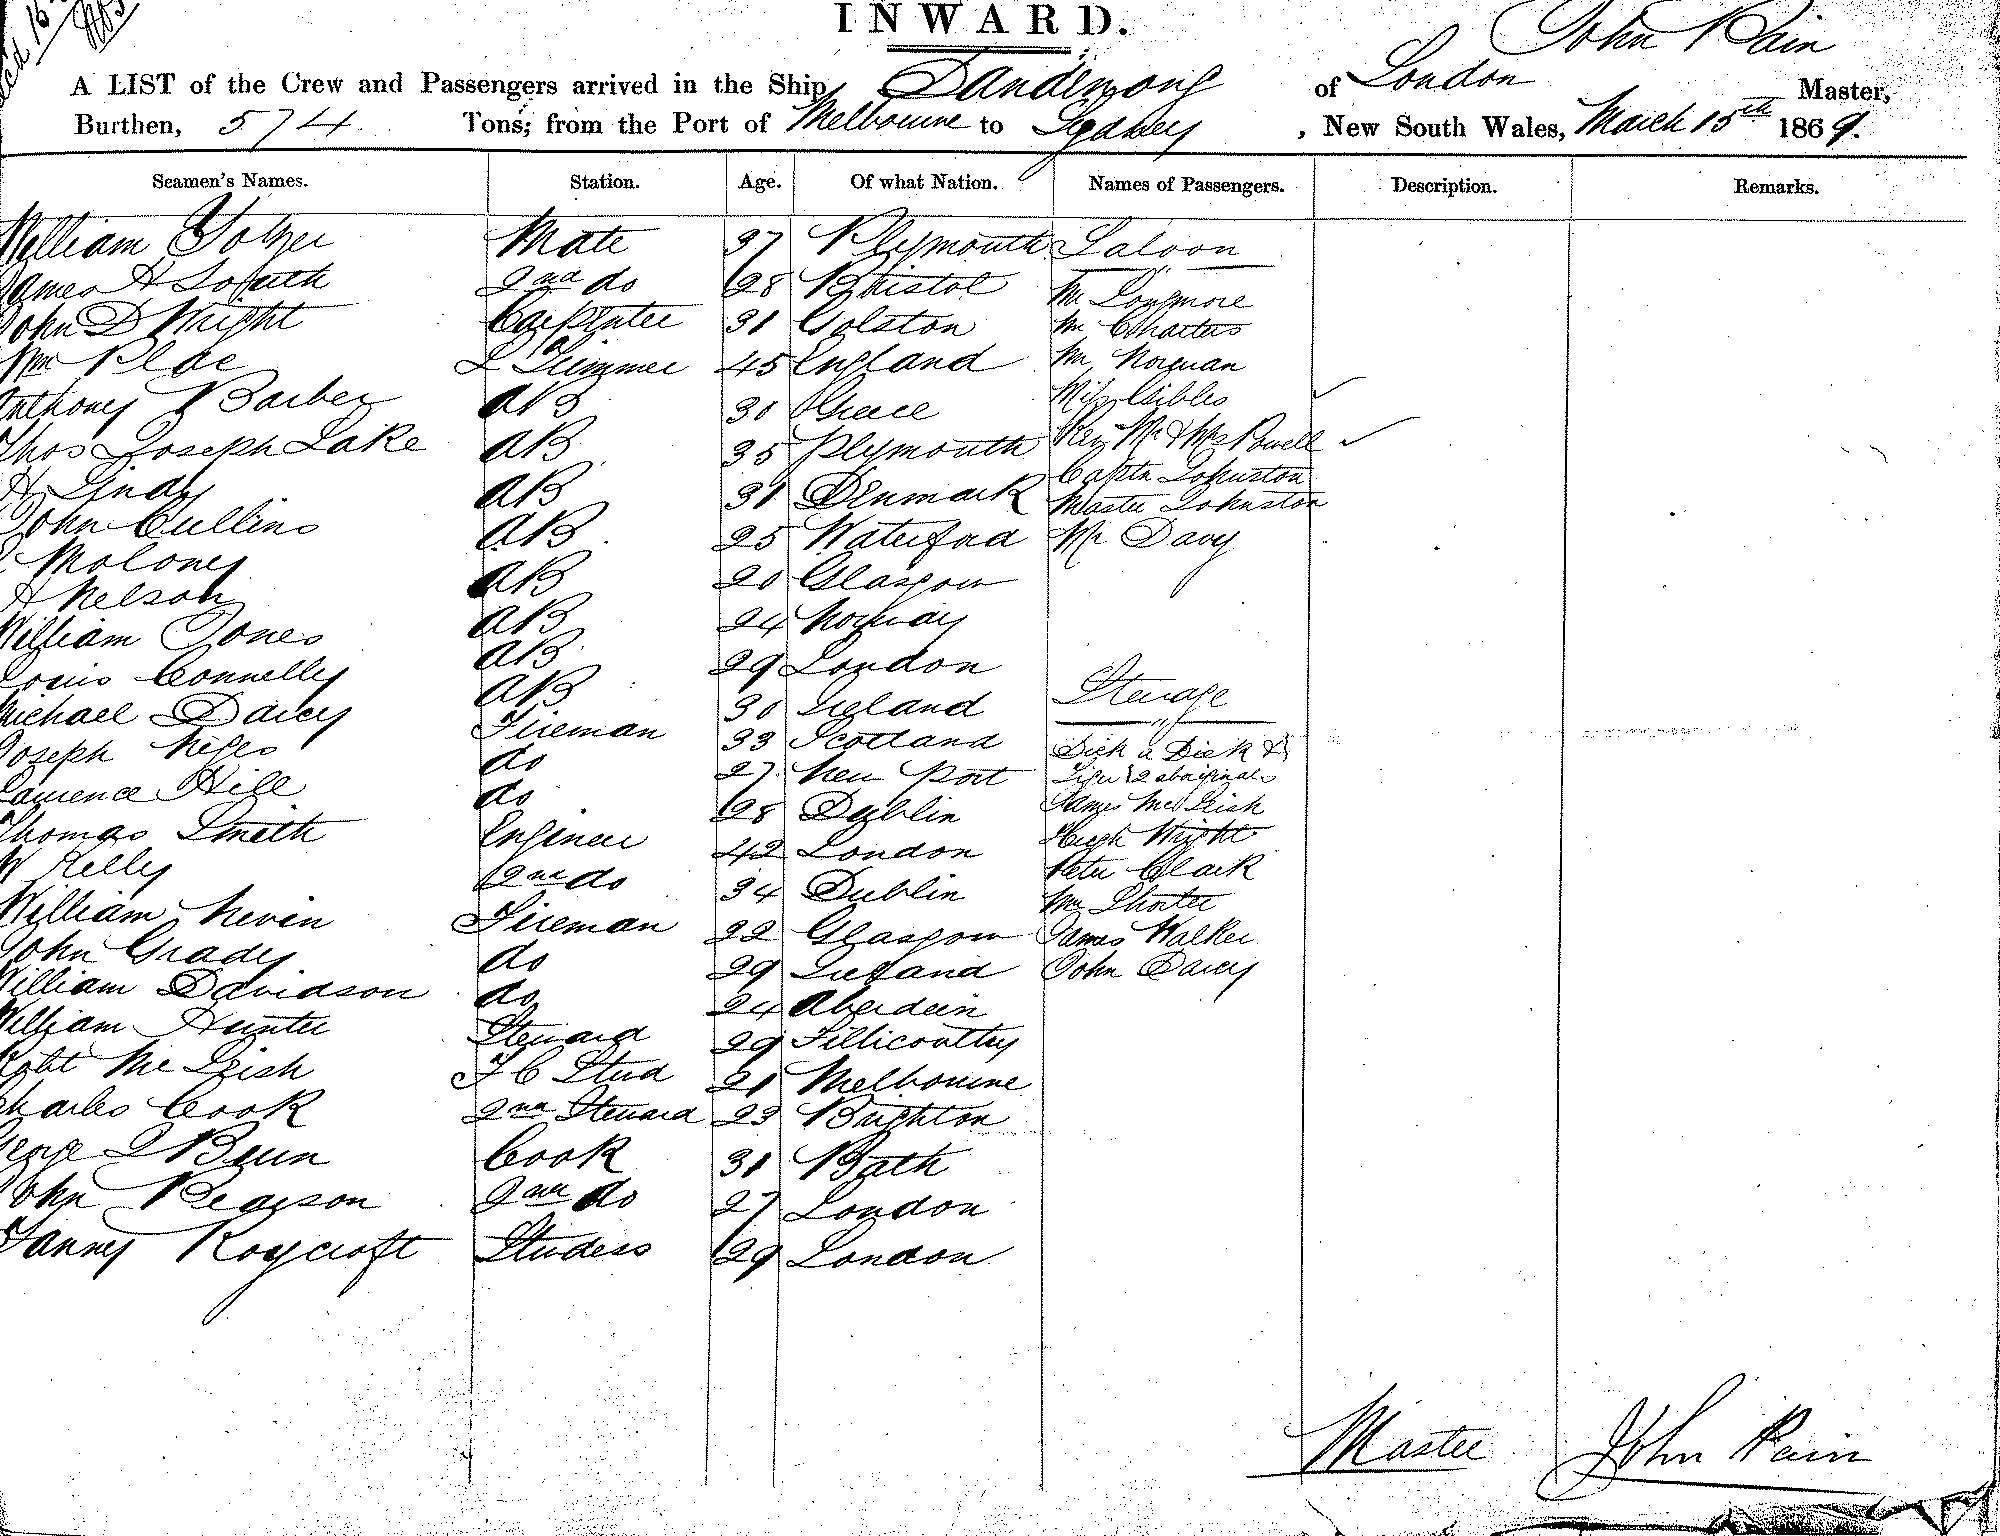 INWARD.
John Pain
A LIST of the Crew and Passengers arrived in the Ship Dandenong of London Master,
Burthen, 574 Tons; from the Port of Melbourne to Sydney, New South Wales, March 15th 1869.
Seamen's Names. Station. Age. Of what Nation. Names of Passengers. Description. Remarks.
William Mate 37 Plymouth Saloon
James H South 2nd do 28 Bristol Mr Longmore
John D Wright Carpenter 31 Golston Mr Charters
Wm Place L Trimmer 45 England Mr Norman
Anthony Barber AB 30 Greece Miss Gibbes
Thos Joseph Lake AB 35 Plymouth Rev Mr & Mrs Powell
H Lindy AB 31 Denmark Captn Johnston
Master Johnston
John Cullins AB 25 Waterford Mr Davy
Moloney AB 20 Glasgow
A Nelson AB 24 Norway
William Jones AB 29 London
Louis Connelly AB 30 Ireland Sterage
Michael Darcy Fireman 33 Scotland Dick a Dick &
Joseph do 27 New Port Tiger 2 aboriginals
Laurence Hill do 28 Dublin James McLeish
Thomas Smith Engineer 42 London Hugh Wright
W Kelly 2nd do 34 Dublin Peter Clark
Mr Shorter
William Nevin Fireman 22 Glasgow James Walker
John Grady do 29 Ireland John Darcy
William Davidson do 24 Aberdeen
William Hunter Steward 29 Tillicoultry
Robt McLeish F C Stud 21 Melbourne
Charles Cook 2nd Steward 23 Brighton
George Cook 31 Bath
John Pearson 2nd do 27 London
Fanny Roycroft Studess 29 London
Master John Pain